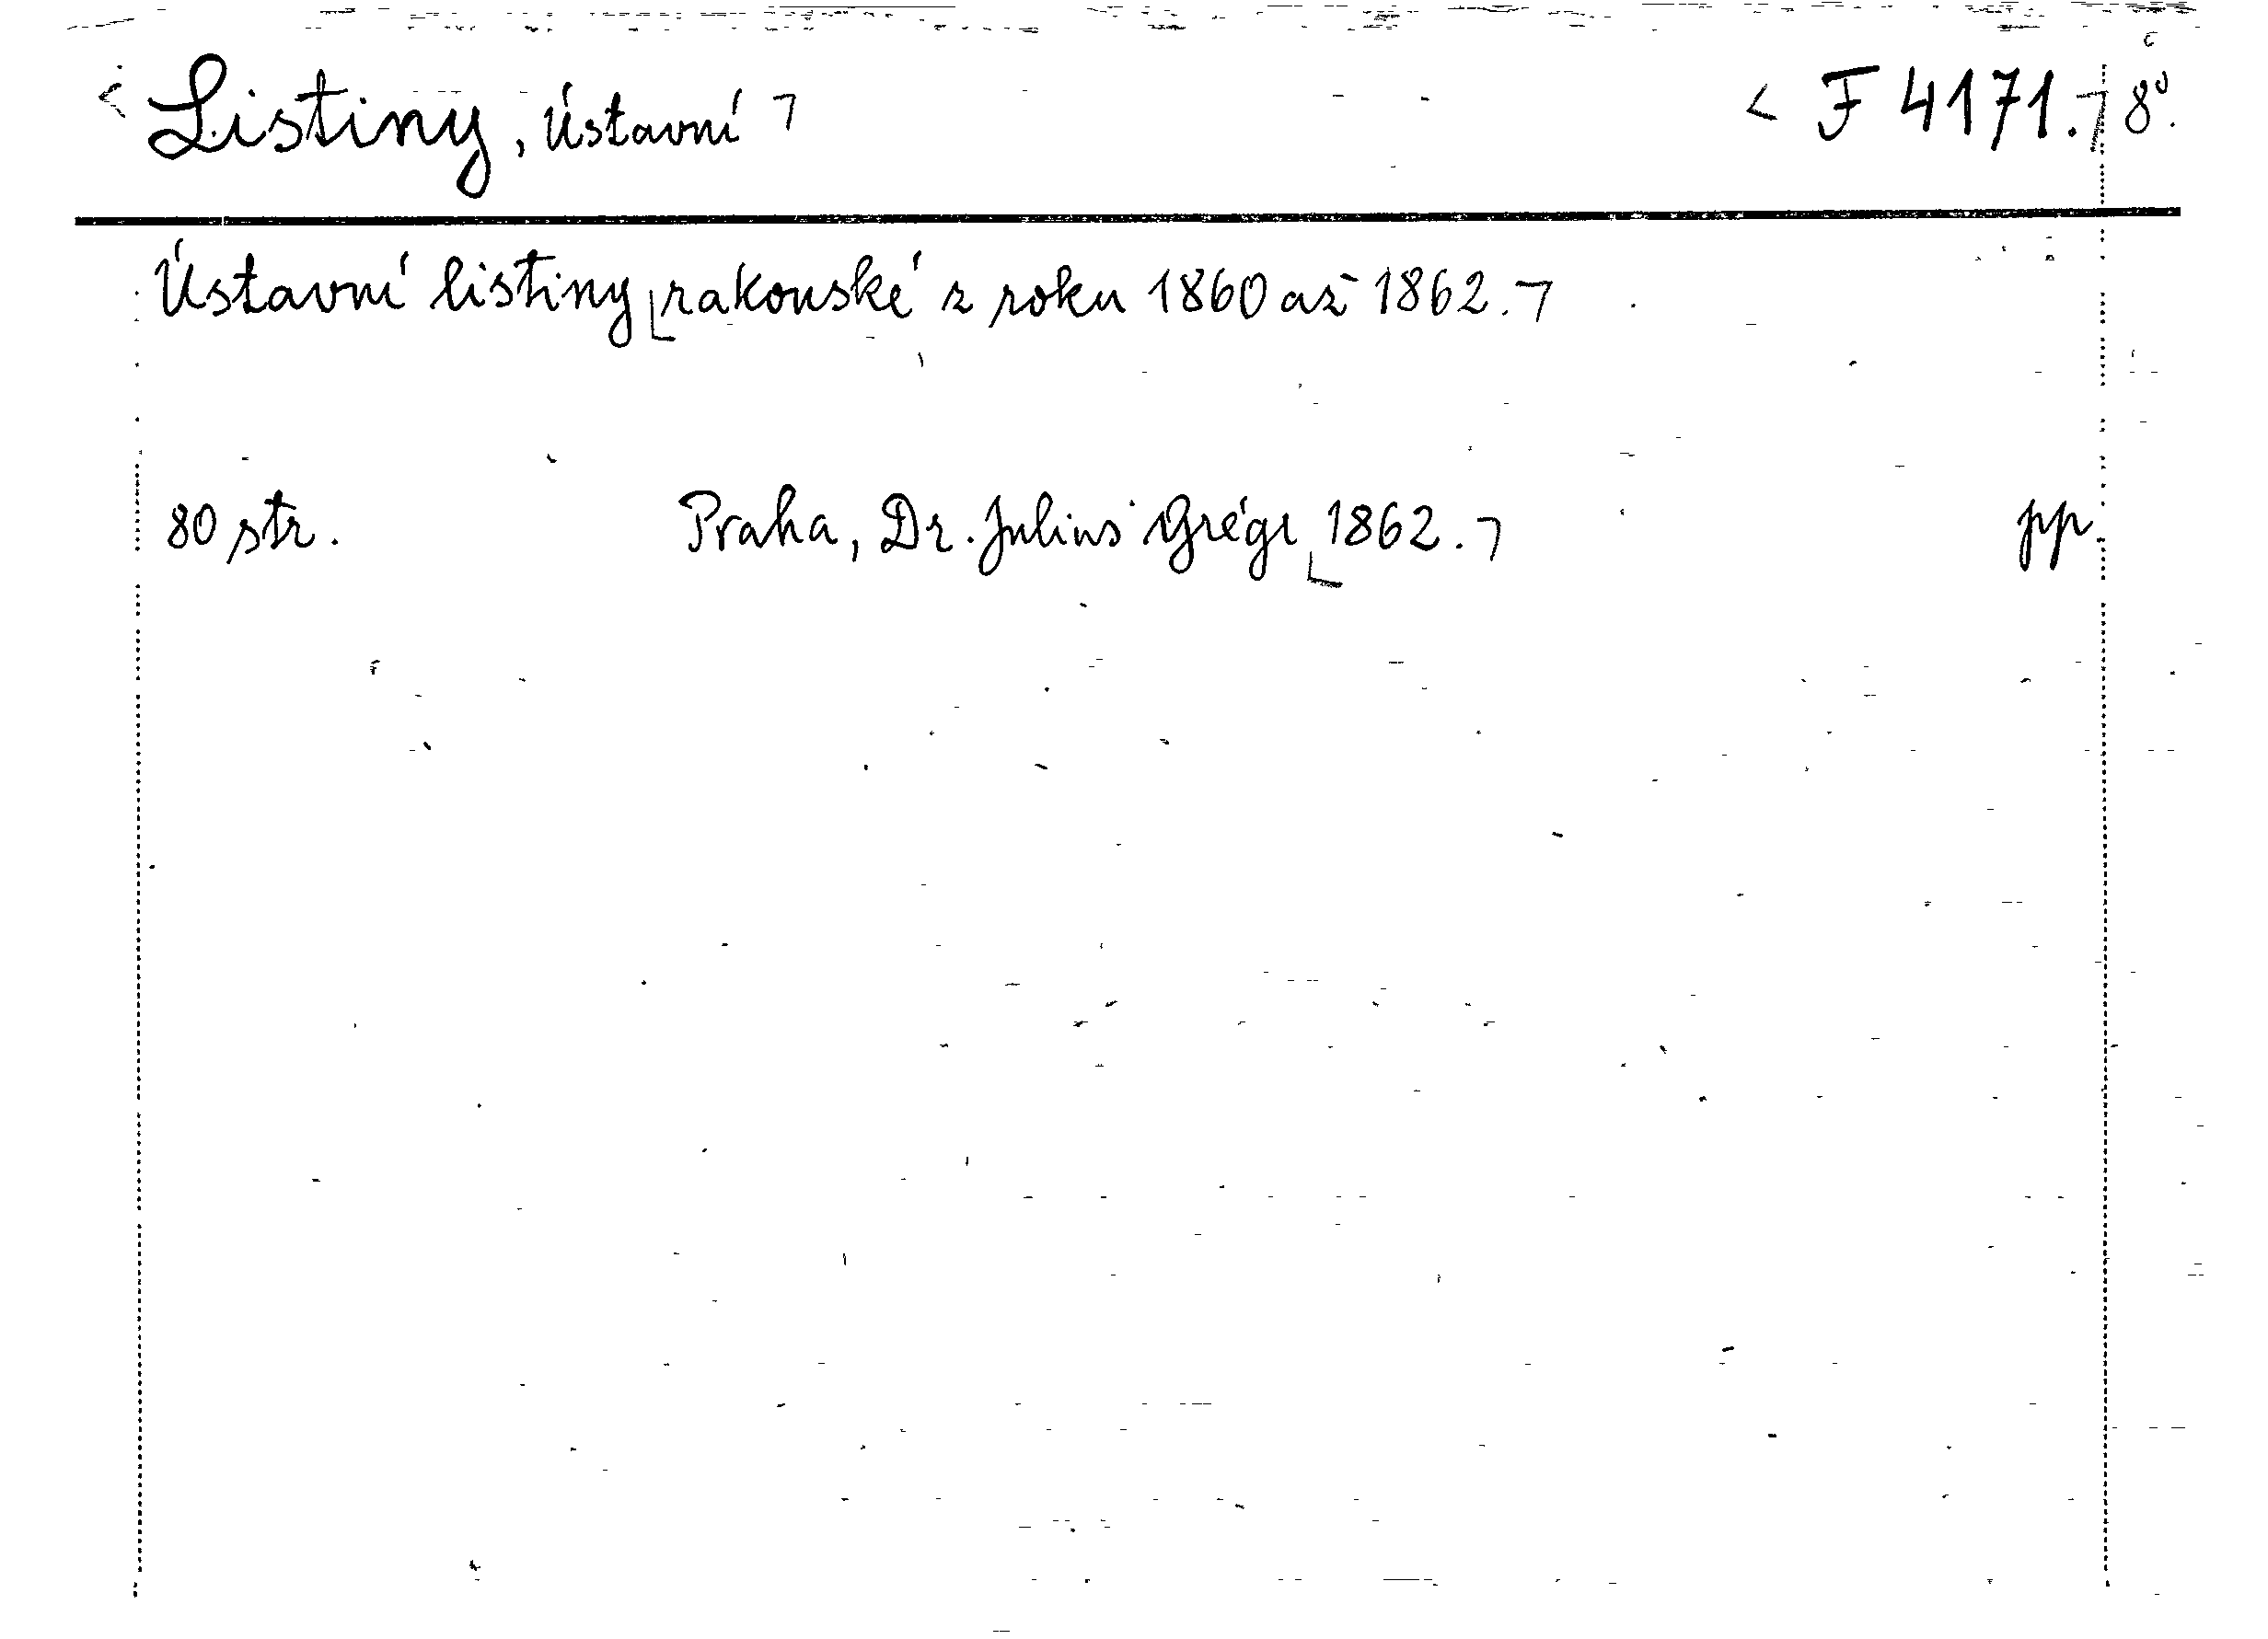 Listiny, Ústavní F 4171. 8°.
Ústavní listiny rakouské z roku 1860 až 1862.
80 str. Praha, Dr. Julius Grégr 1862. pp.